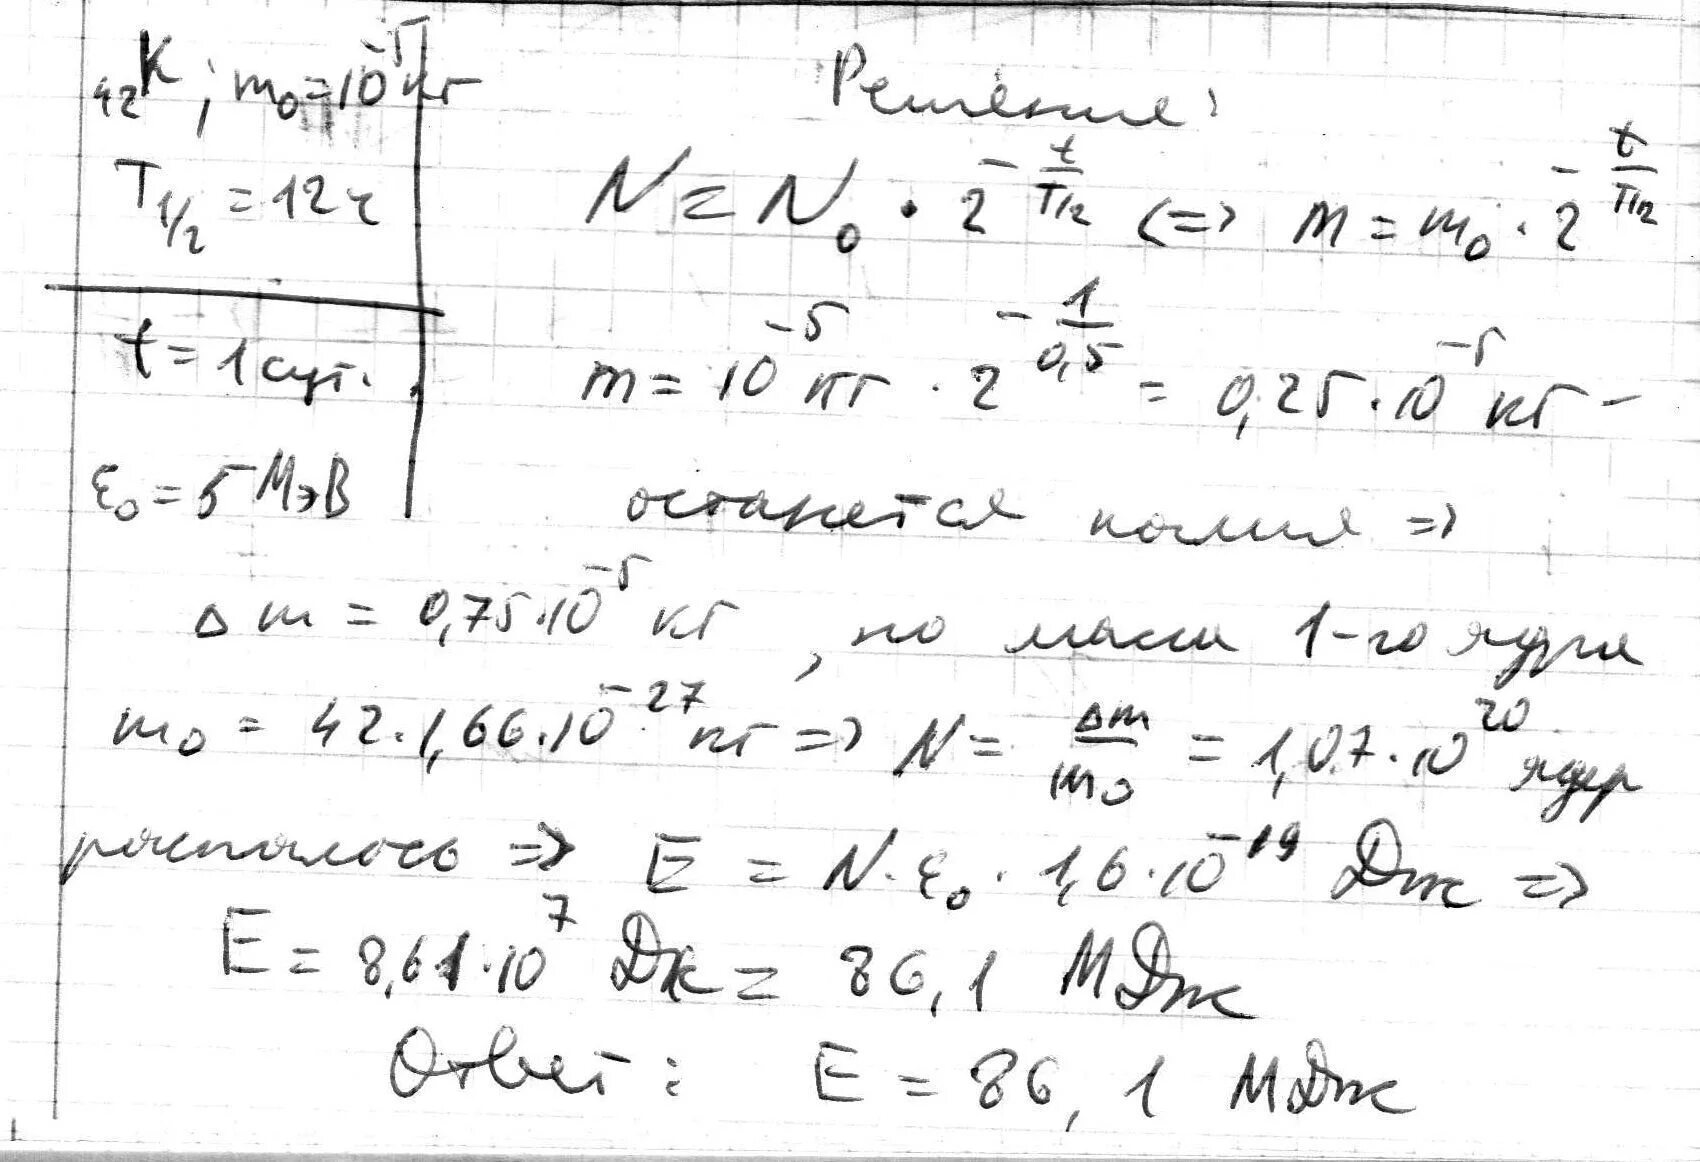 ₄₂K; m₀ = 10⁻⁵ кг
T₁/₂ = 12 ч
t = 1 сут.
ε₀ = 5 МэВ
Решение:
N = N₀ · 2^(-t/T1/2) <=> m = m₀ · 2^(-t/T1/2)
m = 10⁻⁵ кг · 2^(-1/0,5) = 0,25 · 10⁻⁵ кг –
останется калия =>
Δm = 0,75·10⁻⁵ кг, но масса 1-го ядра
m₀ = 42·1,66·10⁻²⁷ кг => N = Δm/m₀ = 1,07·10²⁰ ядер
распалось => E = N·ε₀·1,6·10⁻¹⁹ Дж =>
E = 8,61·10⁷ Дж = 86,1 МДж
Ответ: E = 86,1 МДж